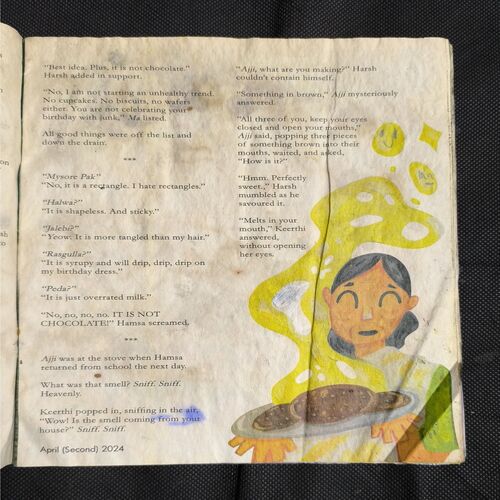 "Best idea. Plus, it is not chocolate."
Harsh added in support.
"No, I am not starting an unhealthy trend.
No cupcakes. No biscuits, no wafers
either. You are not celebrating your
birthday with junk," Ma listed.
All good things were off the list and
down the drain.
***
"Mysore Pak"
"No, it is a rectangle. I hate rectangles."
"Halwa?"
"It is shapeless. And sticky."
"Jalebi?"
"Yeow. It is more tangled than my hair."
"Rasgulla?"
"It is syrupy and will drip, drip, drip on
my birthday dress."
"Peda?"
"It is just overrated milk."
"No, no, no, no. IT IS NOT
CHOCOLATE!" Hamsa screamed.
***
Ajji was at the stove when Hamsa
returned from school the next day.
What was that smell? Sniff. Sniff.
Heavenly.
Keerthi popped in, sniffing in the air,
"Wow! Is the smell coming from your
house?" Sniff. Sniff.
April (Second) 2024
"Ajji, what are you making?" Harsh
couldn't contain himself.
"Something in brown," Ajji mysteriously
answered.
"All three of you, keep your eyes
closed and open your mouths,"
Ajji said, popping three pieces
of something brown into their
mouths, waited, and asked,
"How is it?"
"Hmm. Perfectly
sweet.," Harsh
mumbled as he
savoured it.
"Melts in your
mouth," Keerthi
answered,
without opening
her eyes.